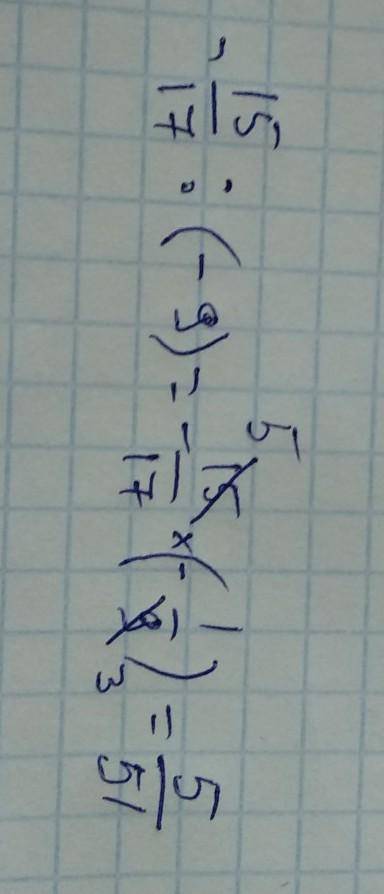 - 15/17 : (-9) = - 15/17 × (- 1/9) = 5/51
5
3